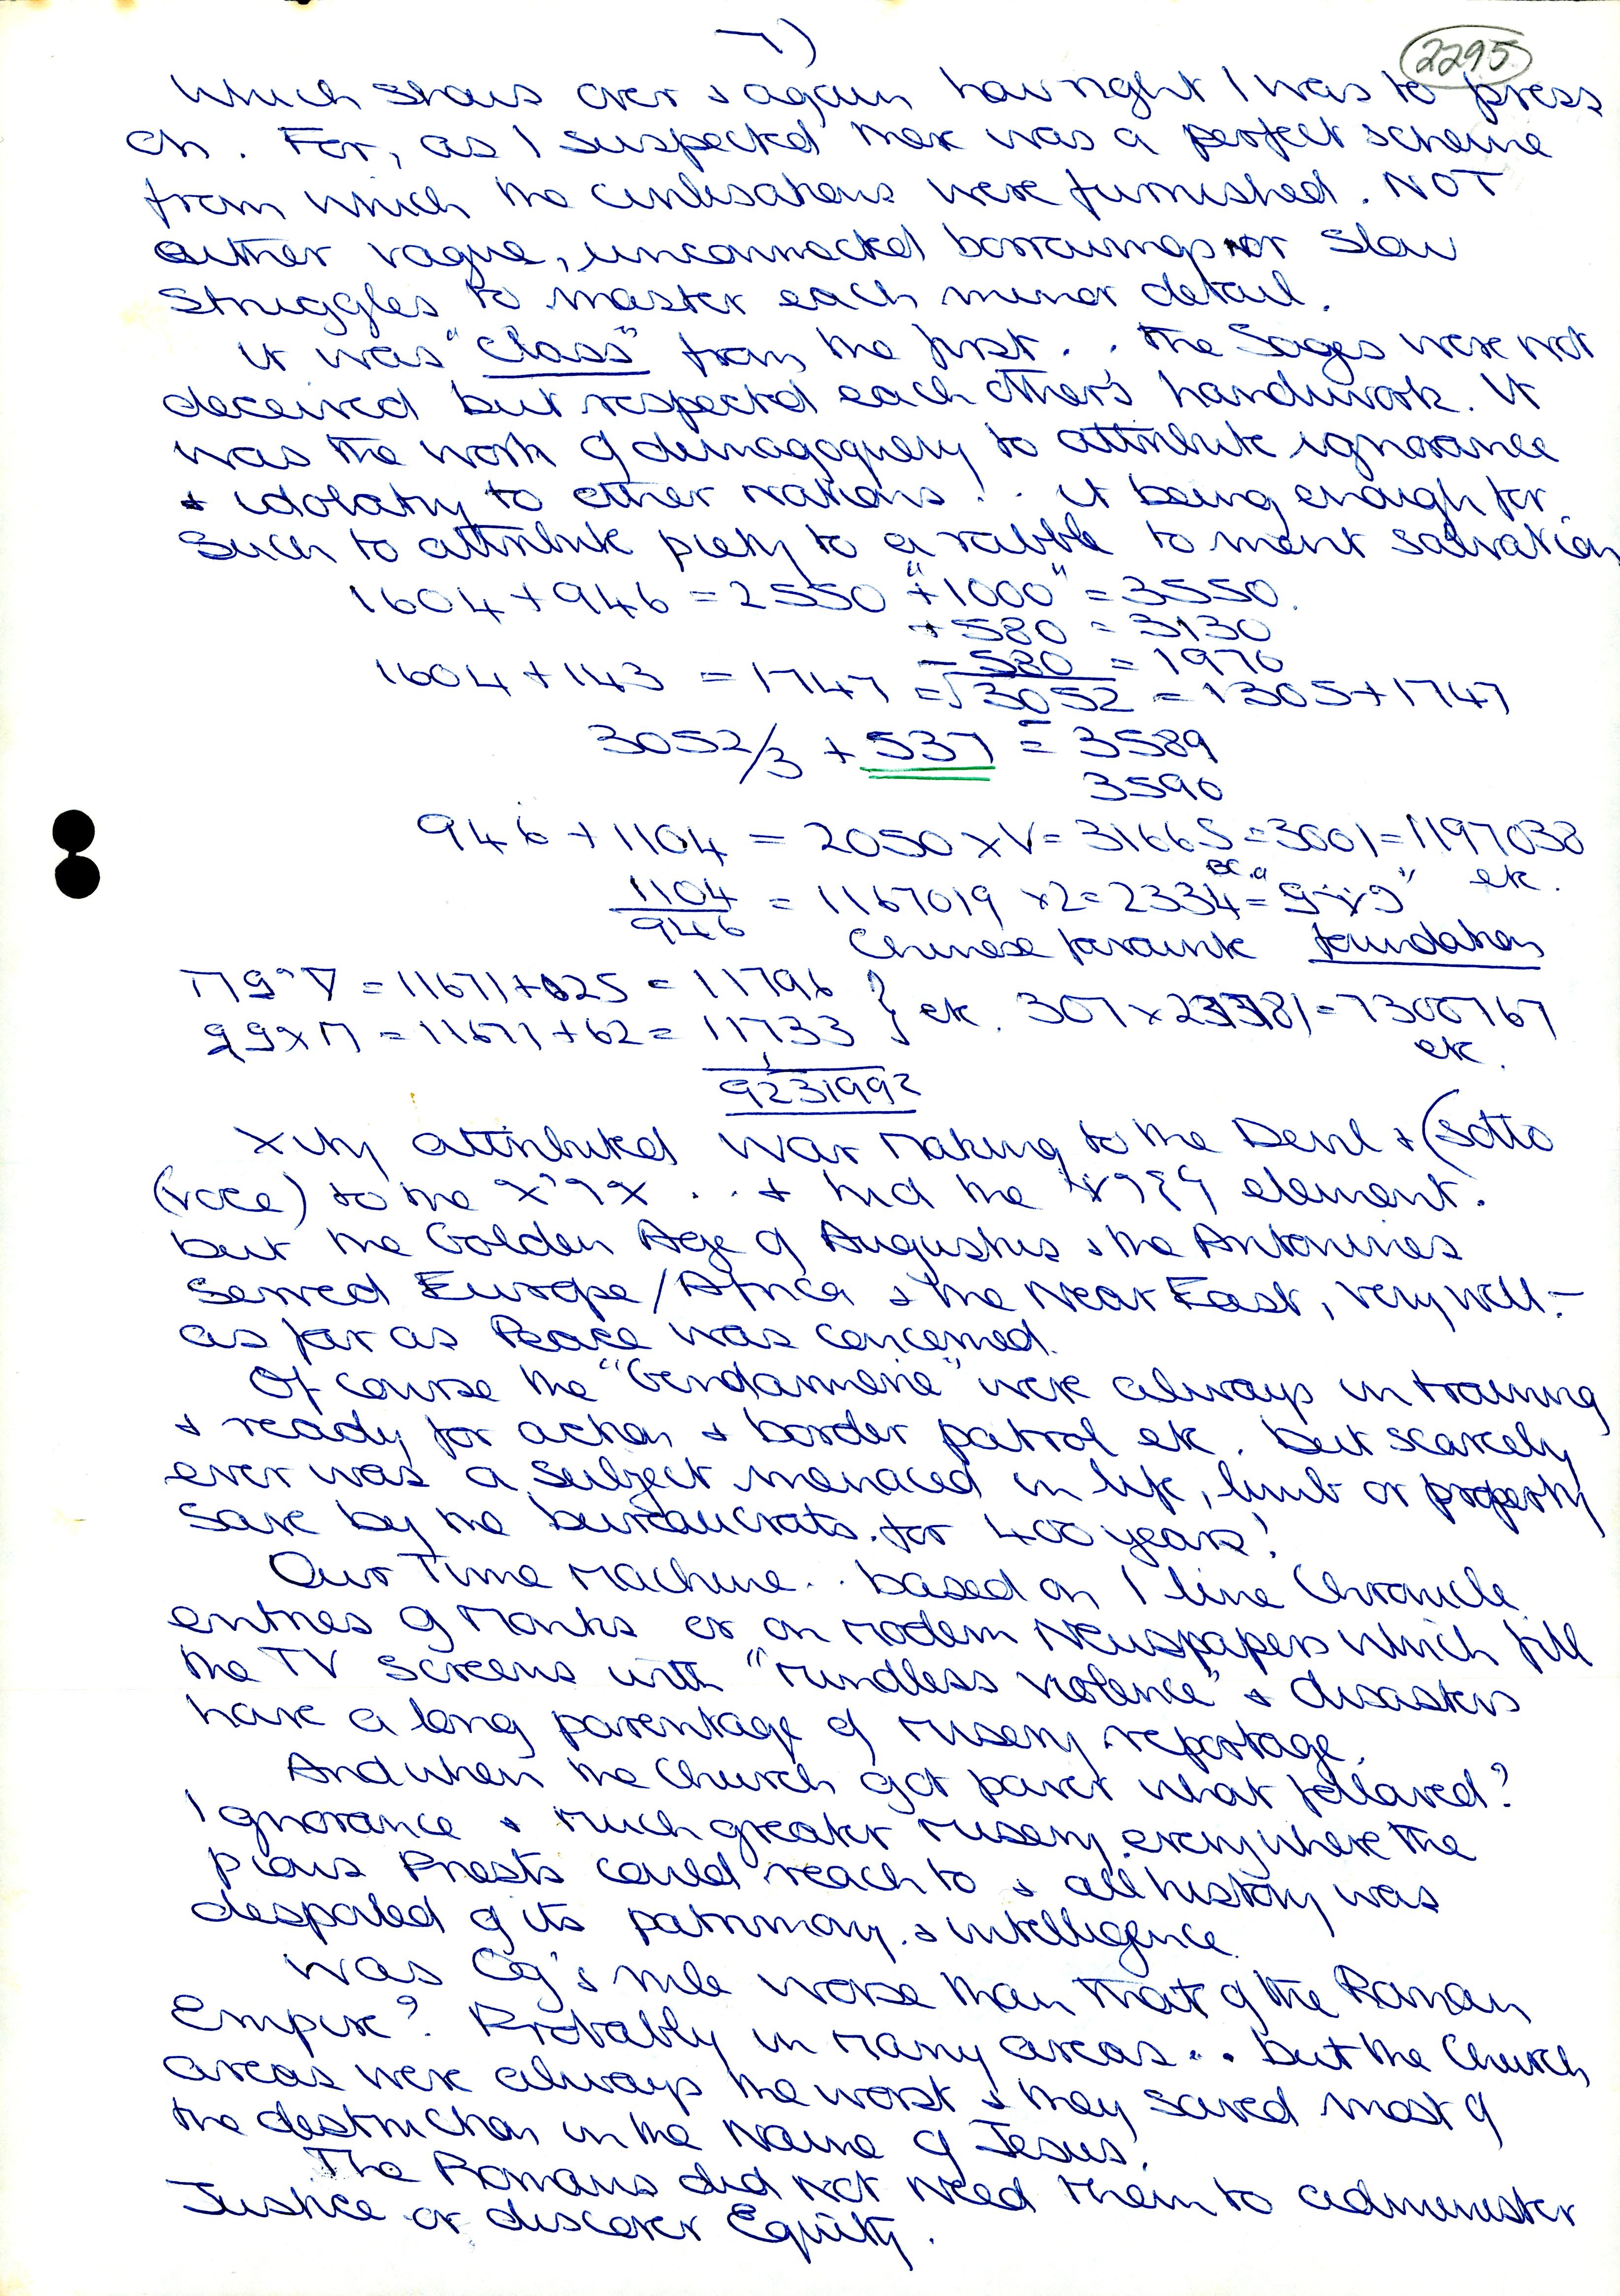 7)
2295
Which shows over & again how right I was to press
on. For, as I suspected there was a perfect scheme
from which the civilisations were furnished. NOT
either vague, unconnected borrowings nor slow
struggles to master each minor detail.
It was "Class" from the first.. The Sages were not
deceived but respected each other's handiwork. It
was the work of demagoguery to attribute ignorance
& idolatry to other nations.. it being enough for
such to attribute piety to a rabble to merit salvation
1604 + 946 = 2550 "+1000" = 3550.
+ 580 = 3130
- 580 = 1970
1604 + 143 = 1747 = √3052 = 1305 + 1747
3052/3 + 537 = 3589
3590
946 + 1104 = 2050 x V = 31665 = 3601 = 1197038
etc.
1104/946 = 1167019 x2 = 2334 =
BC.a
Chinese favourite foundation
= 11671 + 125 = 11796 } etc. 307 x 23781 = 7300767
= 11671 + 62 = 11733
etc.
9231992
Xity attributed War Making to the Devil & (sotto
(voce) to the .. & hid the element.
But the Golden Age of Augustus & the Antonines
served Europe/Africa & the Near East, very well:-
as far as Peace was concerned.
Of course the "Gendarmerie" were always in training
& ready for action & border patrol etc. But scarcely
ever was a subject menaced in life, limb or property
save by the bureaucrats. for 400 years!
Our Time Machine.. based on 1 line Chronicle
entries of Monks or on Modern Newspapers which fill
the TV screens with "Mindless violence" & disasters
have a long parentage of misery reportage.
And when the Church got power what followed?
Ignorance & much greater misery everywhere the
pious Priests could reach to & all history was
despoiled of its patrimony. & intelligence.
Was Og's rule worse than that of the Roman
Empire? Probably in many areas.. but the Church
areas were always the worst & they saved most of
the destruction in the Name of Jesus.
The Romans did not need them to administer
Justice or discover Equity.